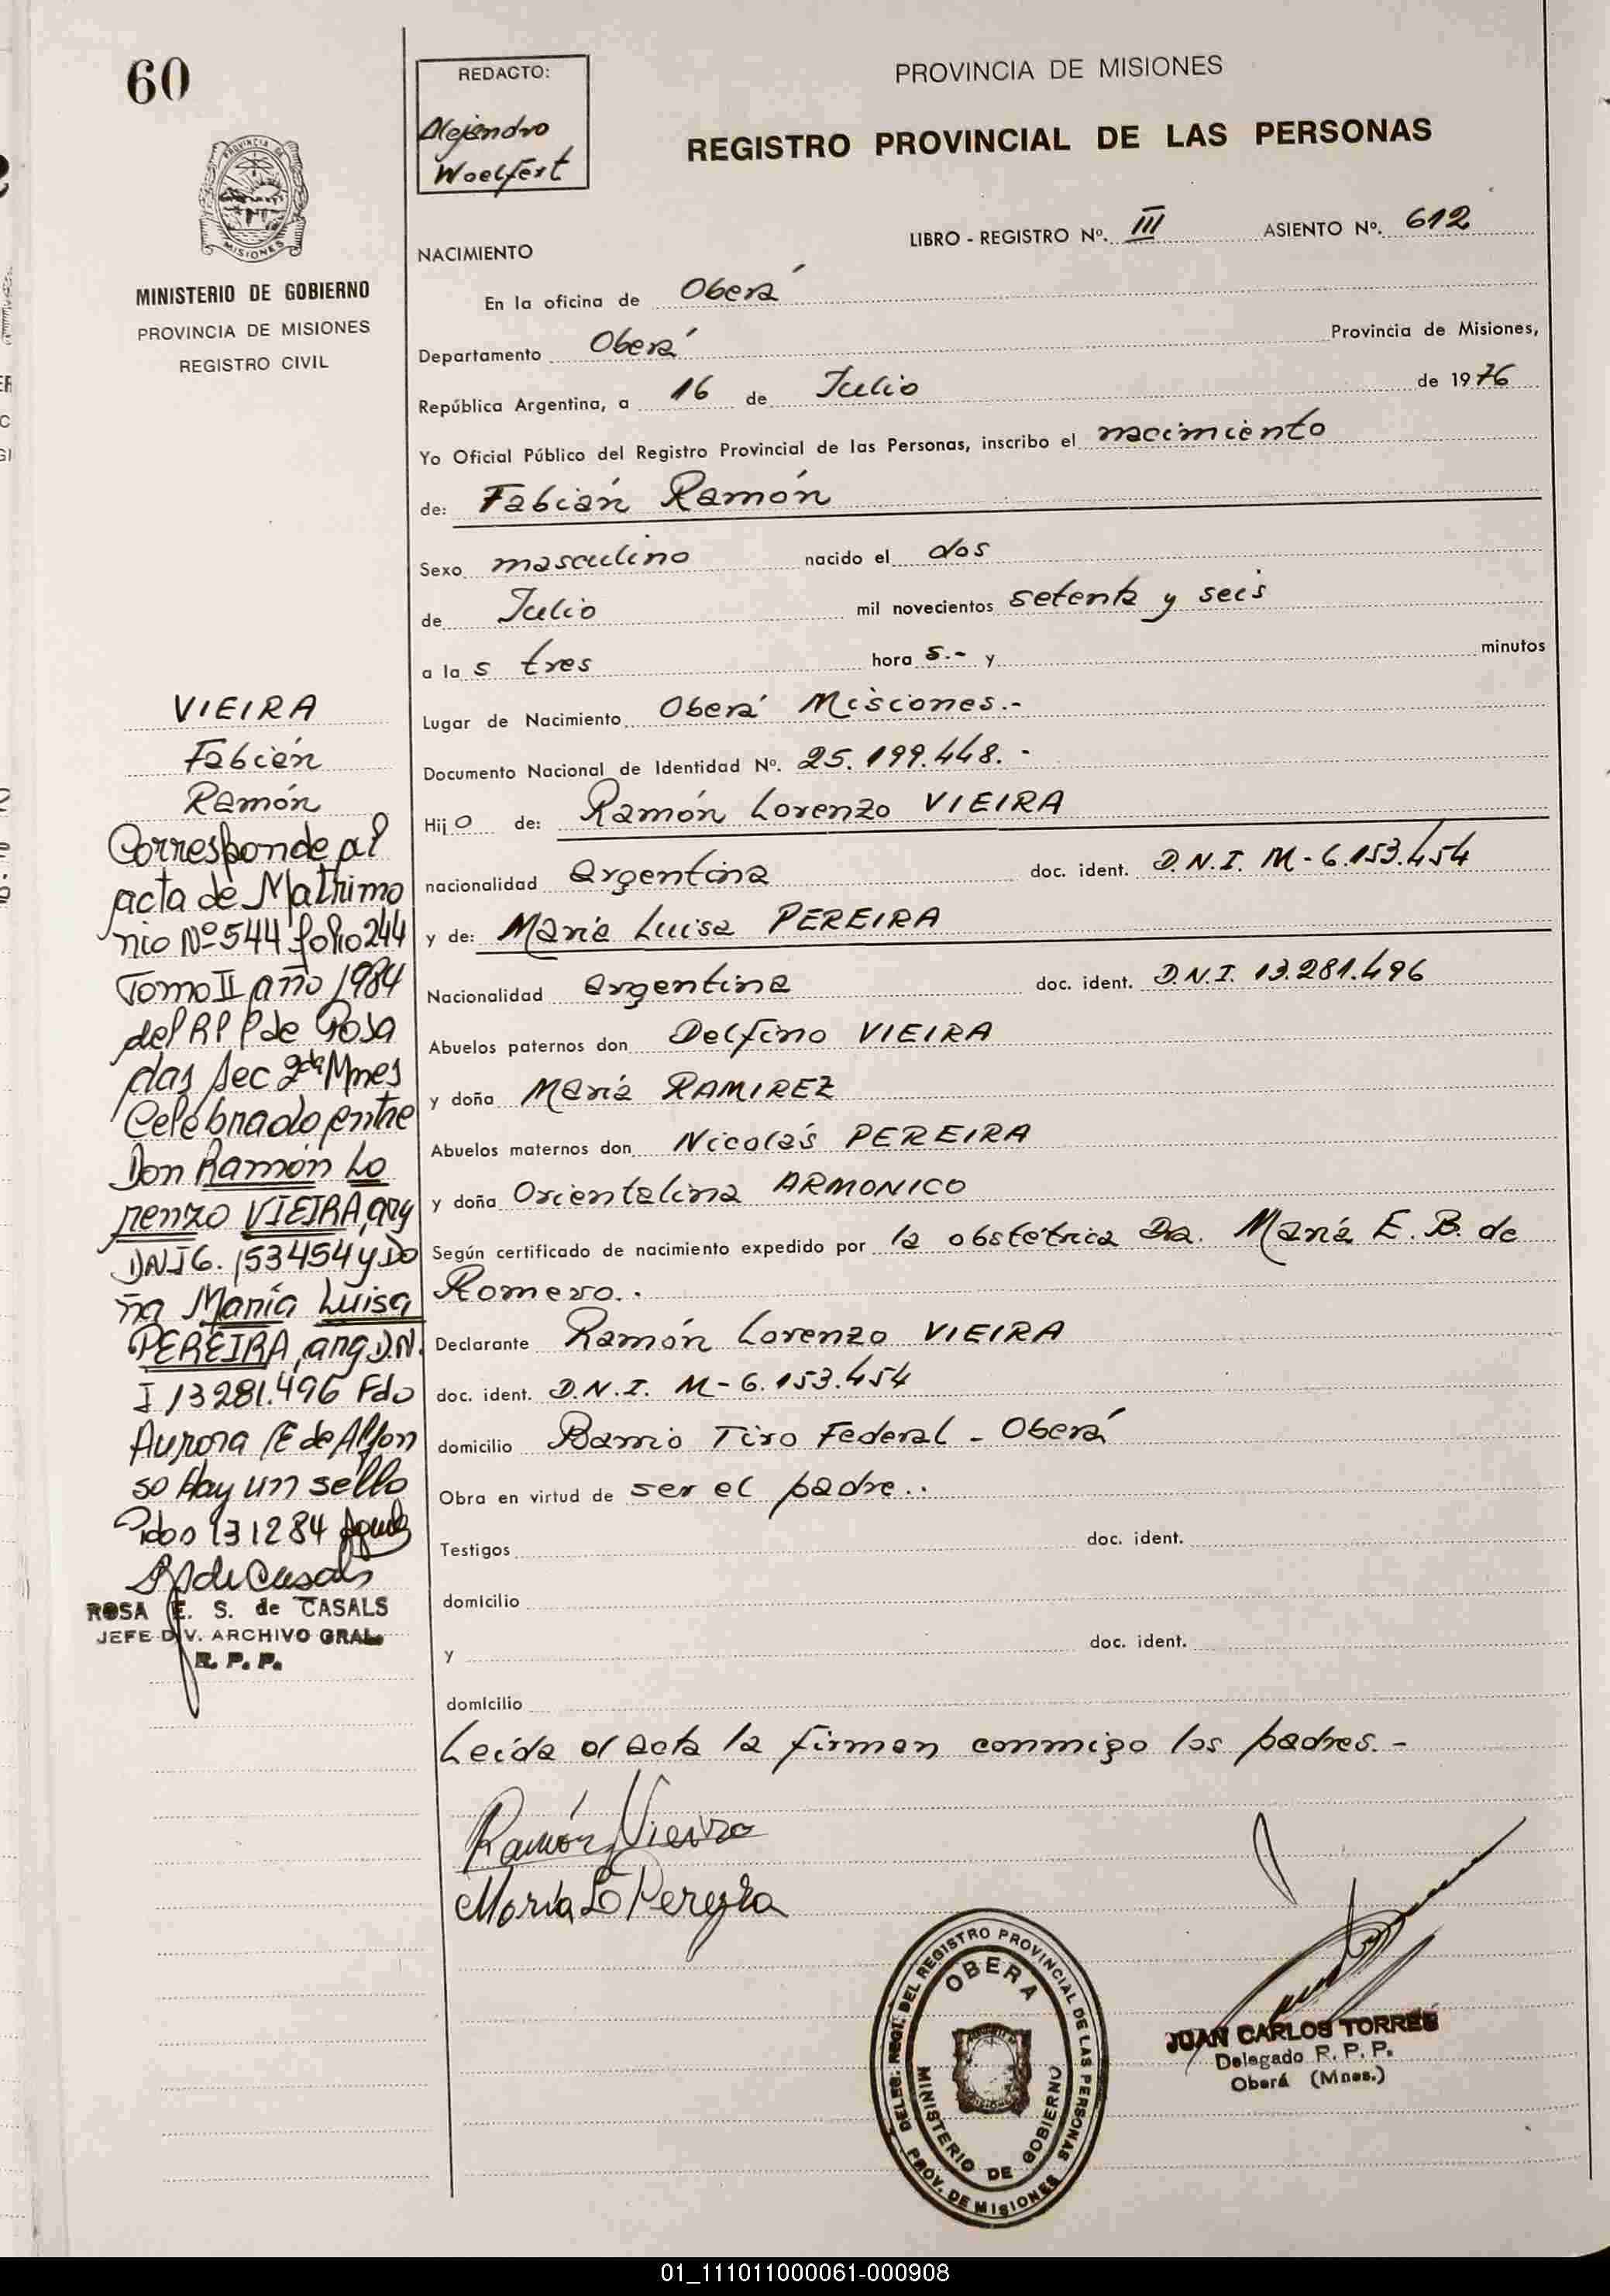 60
REDACTO:
Alejandro
Woelfert
PROVINCIA DE MISIONES
REGISTRO PROVINCIAL DE LAS PERSONAS
PROVINCIA DE
MISIONES
MINISTERIO DE GOBIERNO
PROVINCIA DE MISIONES
REGISTRO CIVIL
LIBRO - REGISTRO Nº. III ASIENTO Nº. 612
NACIMIENTO
En la oficina de Oberá
Departamento Oberá Provincia de Misiones,
República Argentina, a 16 de Julio de 1976
Yo Oficial Público del Registro Provincial de las Personas, inscribo el nacimiento
de: Fabián Ramón
Sexo masculino nacido el dos
de Julio mil novecientos setenta y seis
a la s tres hora s.- y minutos
Lugar de Nacimiento Oberá Misiones.-
Documento Nacional de Identidad Nº. 25.199.448.-
Hij o de: Ramón Lorenzo VIEIRA
nacionalidad argentina doc. ident. D.N.I. M-6.153.454
y de: María Luisa PEREIRA
Nacionalidad argentina doc. ident. D.N.I. 13.281.496
Abuelos paternos don Delfino VIEIRA
y doña María RAMIREZ
Abuelos maternos don Nicolás PEREIRA
y doña Orientalina ARMONICO
Según certificado de nacimiento expedido por la obstétrica Da. María E. B. de
Romero..
Declarante Ramón Lorenzo VIEIRA
doc. ident. D.N.I. M-6.153.454
domicilio Barrio Tiro Federal - Oberá
Obra en virtud de ser el padre..
Testigos doc. ident.
domicilio
y doc. ident.
domicilio
Leída el acta la firman conmigo los padres.-
Ramón Vieira
María L Pereyra
VIEIRA
Fabián
Ramón
Corresponde al
acta de Matrimo
nio Nº 544 folio 244
Tomo II año 1984
del RPP de Posa
das Sec 2da Mnes
Celebrado entre
Don Ramón Lo
renzo VIEIRA, arg
DNI 6.153454 y Do
ña María Luisa
PEREIRA, arg D.N.
I 13281.496 Fdo
Aurora E de Alfon
so Hay un sello
Pdos 131284
R de Casals
ROSA E. S. de CASALS
JEFE DIV. ARCHIVO GRAL.
R. P. P.
DELEG. REGT. DEL REGISTRO PROVINCIAL DE LAS PERSONAS
OBERA
MINISTERIO DE GOBIERNO
PROV. DE MISIONES
JUAN CARLOS TORRES
Delegado R. P. P.
Oberá (Mnes.)
01_111011000061-000908